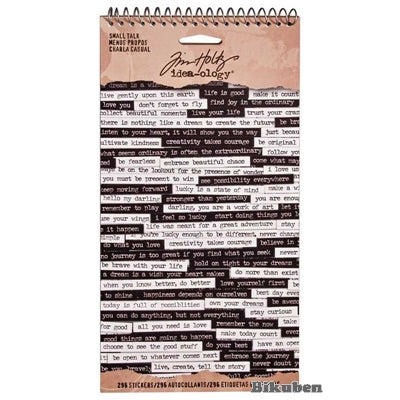 SMALL TALK
MENUS PROPOS
CHARLA CASUAL
Tim Holtz
idea-ology
dream is a
live gently upon this earth life is good make it count
love you don't forget to fly find joy in the ordinary
collect beautiful moments live your life trust your craz
there is nothing like a dream to create the future be brav
listen to your heart, it will show you the way just becau
cultivate kindness creativity takes courage be original
what seems ordinary is often the extraordinary follow you
be fearless embrace beautiful chaos come what may
be on the lookout for the presence of wonder i love us
you must be present to win see possibility everywhere
keep moving forward lucky is a state of mind make a
hello my darling stronger than yesterday you are enoug
remember to play darling, you are a work of art let it
use your wings i feel so lucky start doing things you l
it happen life was meant for a great adventure
if you're lucky enough to be different, never change
do what you love creativity takes courage believe in
your journey is too great if you find what you seek never
be brave with your life hold on tight to your dreams
a dream is a wish your heart makes do more than exist
when you know better, do better love yourself first be
to shine happiness depends on ourselves better to
today is full of possibilities own your dreams be awesome
you can do anything, but not everything stay curious
for good all you need is love remember the now take
make today count be kind anyway never stop exploring
choose to see the good stuff do what you
it be open to whatever comes next embrace change
be bravely live, create, tell the story never
296 STICKERS/296 AUTOCOLLANTS/296 ETIQUETAS
Bikuben